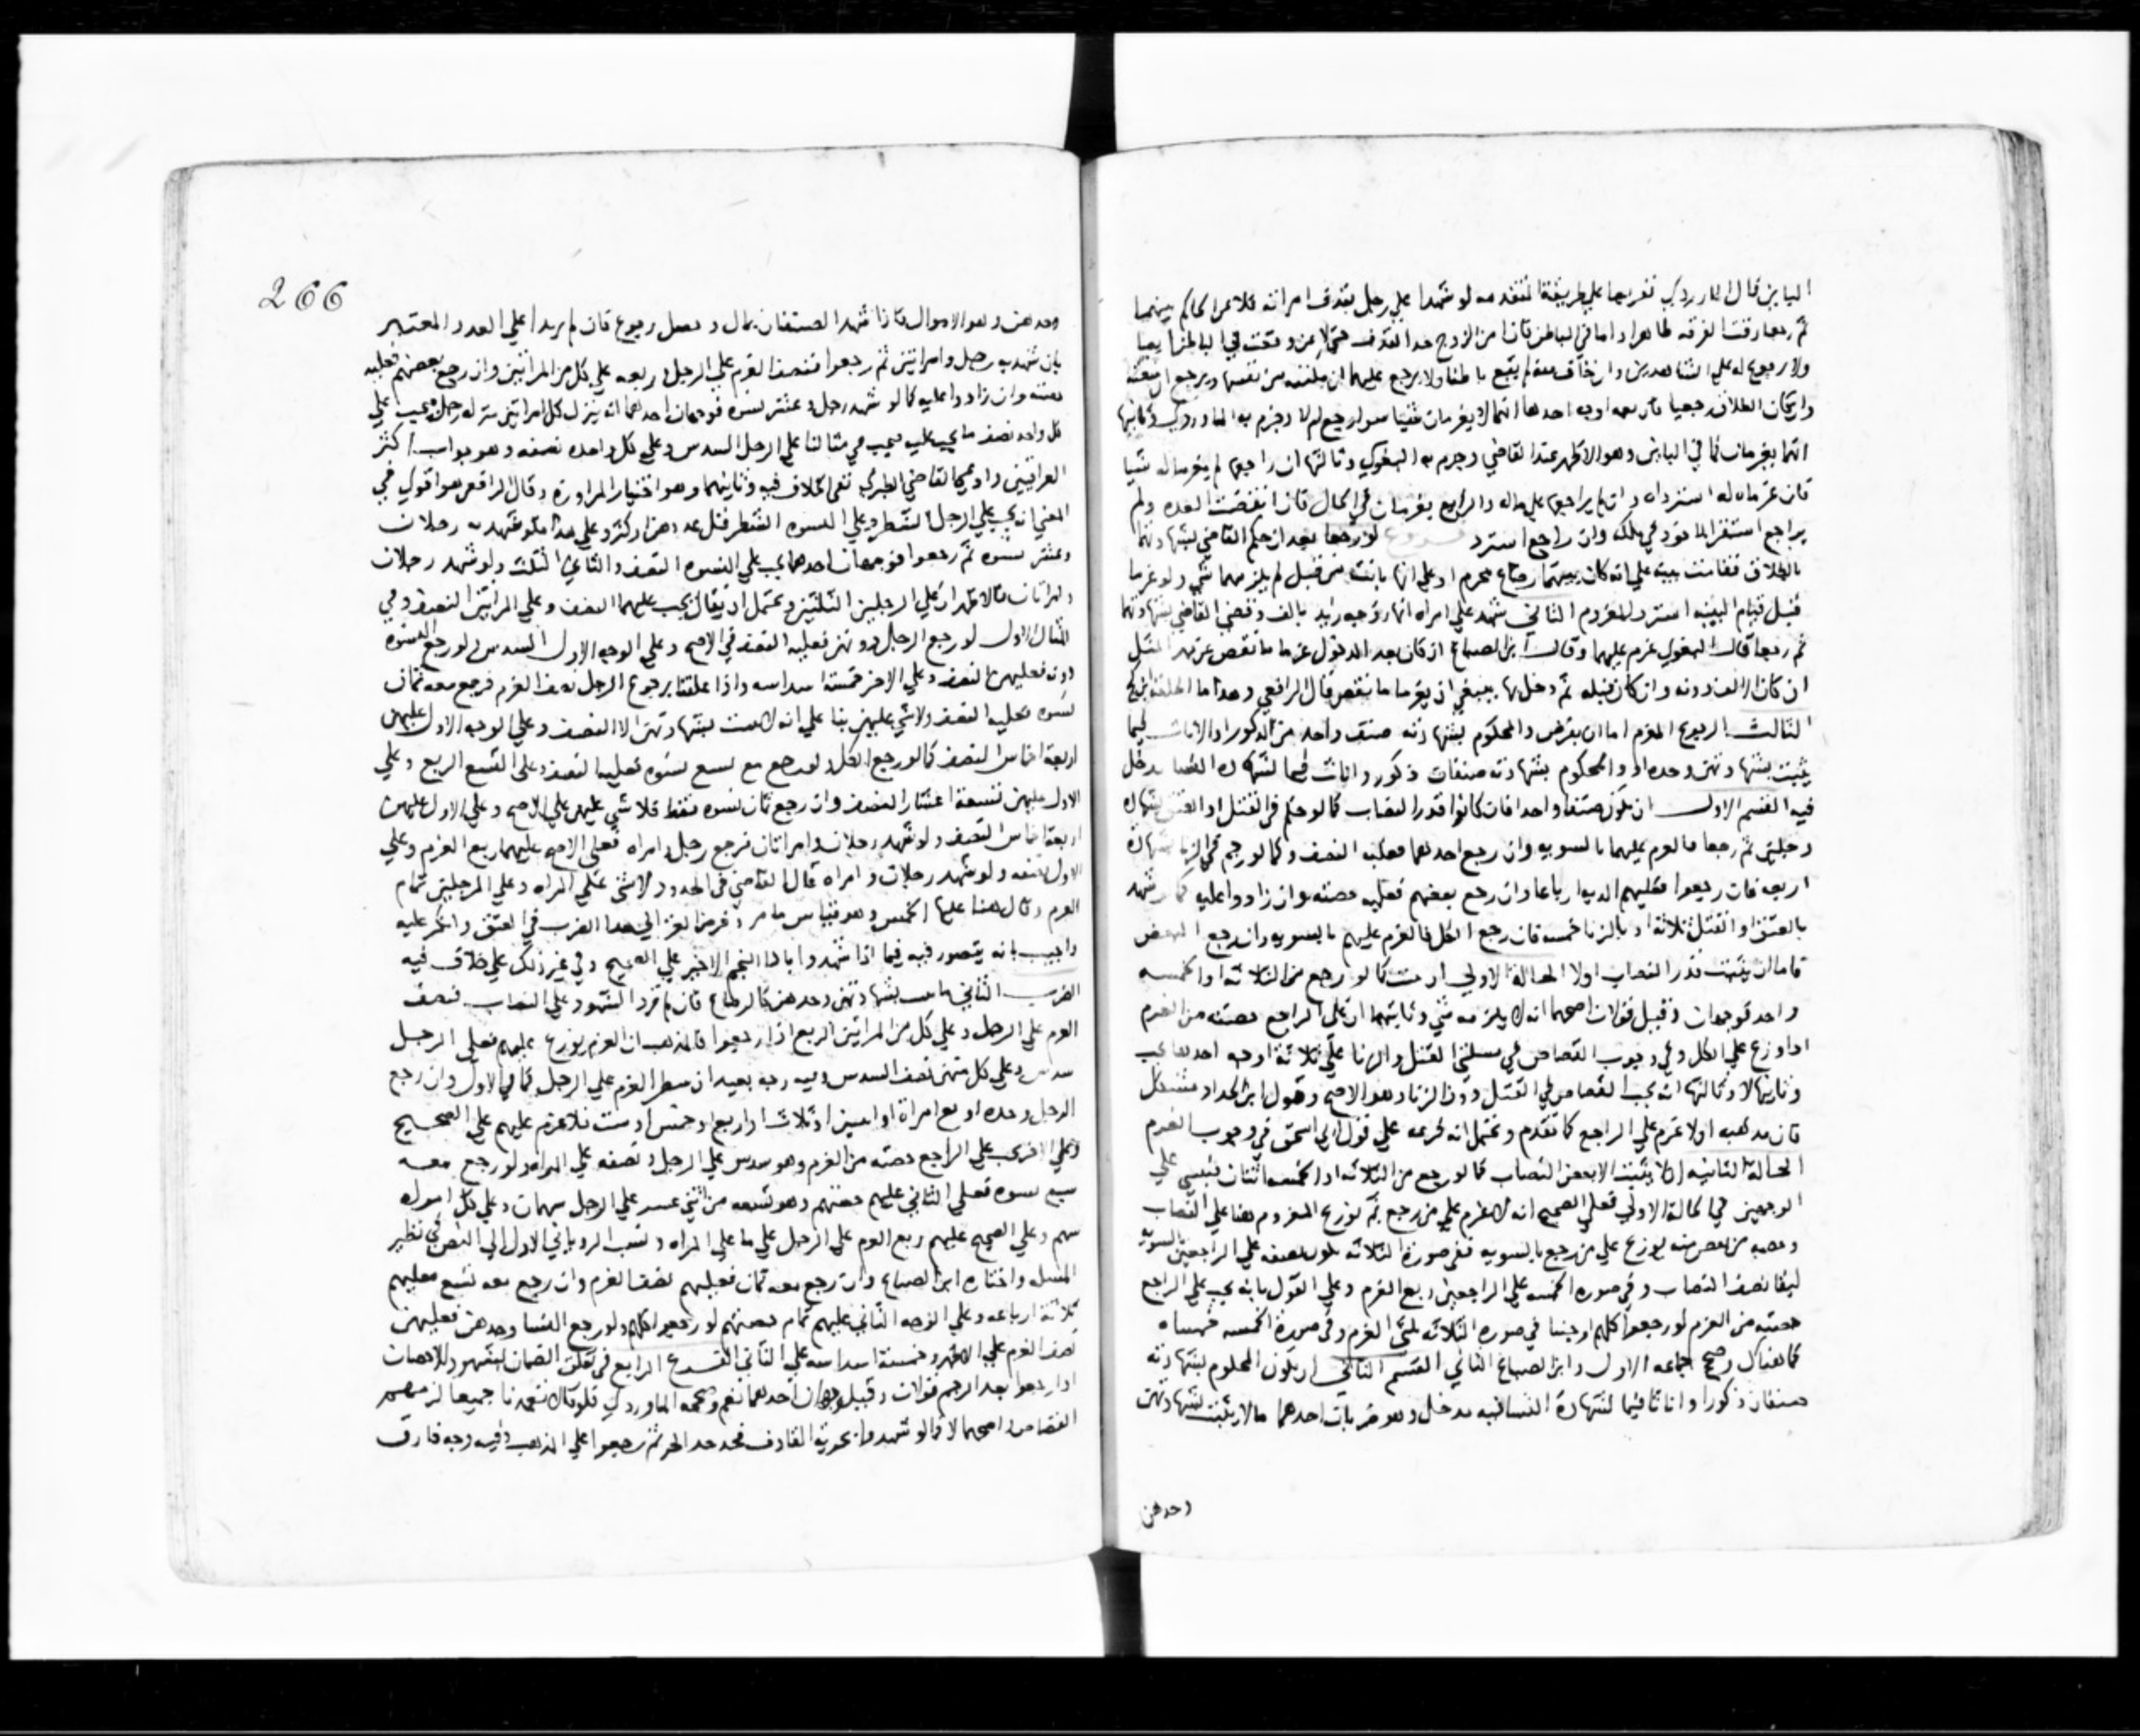 الباين قال الماوردي تفريعا علي طريقة المتقدمه لو شهدا علي رجل بقذف امراته فلاعن الحاكم بينهما
ثم رجعا وقعت الفرقه ظاهرا واما في الباطن فان الزوج
ولا رجوع له علي الشاهدين وان خالف لم يقع باطنا ولا يرجع عليهما
وان كان الطلاق رجعيا فاربعه اوجه احدها انهما لا يغرمان شيا سوا رجع ام لا وجزم به الماوردي وثانيها
انهما يغرمان كما في الباين وهو الاظهر عند القاضي وجزم به البغوي وثالثها ان راجعها لم يغرما له شيا
فان غرماه له استرداه وان لم يراجعها والرابع يغرمان في الحال فان انقضت العده ولم
يراجع استقر الماخوذ في ملكه وان راجع استرد فروع لو رجعا بعد ان حكم القاضي بشهادتهما
بالطلاق فقامت بينه علي انه كان بينهما رضاع محرم او علي انها بانت من قبل لم يلزمهما شي ولو غرما
قبل قيام البينه استرد المغروم الثاني شهدا علي امراه انها زوجه زيد بالف وقضي القاضي بشهادتهما
ثم رجعا قال البغوي غرم عليهما وقال ابن الصباغ ان كان بعد الدخول غرما ما نقص عن مهر المثل
ان كان الالف دونه وان كان قبله ثم دخل بها ينبغي ان يغرما ما نقص قال الرافعي وهذا ما اطلقه ابن كج
الثالث الرجوع المغرم اما ان يفرض والمحكوم بشهادته صنف واحد من الذكور او الاناث فيما
يثبت بشهادتهن وحدهن او والمحكوم بشهادته صنفان ذكور واناث فيما لشهاده النسا مدخل
فيه القسم الاول ان يكون صنفا واحدا فان كانوا قدر النصاب كما لو حكم في القتل او العتق بشهاده
رجلين ثم رجعا فالغرم عليهما بالسويه وان رجع احدهما فعليه النصف وكما لو رجم في الزنا بشهادة
اربعه فان رجعوا فعليهم الديه ارباعا وان رجع بعضهم فعليه حصته وان زادوا عليه كما لو شهد
بالعتق او القتل ثلاثة او بالزنا خمسه فان رجع الكل فالغرم عليهم بالسويه وان رجع البعض
فاما ان يثبت قدر النصاب اولا الحالة الاولي ان ثبت كما لو رجع من الثلاثة او الخمسه
واحد فوجهان وقيل قولان اصحهما انه لا يلزمه شي وثانيهما ان علي الراجع حصته من الغرم
اذا وزع علي الكل وفي وجوب القصاص في مسلتي القتل والزنا علي ثلاثة اوجه احدها يجب
وثانيها لا وثالثها انه يجب القصاص في القتل دون الزنا وهو الاصح وقول ابن الحداد مشكل
فان مذهبه اولا غرم علي الراجع كما تقدم وتحتمل انه فرعه علي قول ابي اسحق في وجوب الغرم
الحالة الثانيه ان لا يثبت الا بعض النصاب كما لو رجع من الثلاثه او الخمسه اثنان فيبني علي
الوجهين في الحالة الاولي فعلي الصحيح انه لا غرم علي من رجع ثم نوزع المغروم هنا علي النصاب
وحصه من نقص منه يوزع علي من رجع بالسويه ففي صورة الثلاثه يكون نصفه علي الراجعين بالسويه
لبقا نصف النصاب وفي صوره الخمسه علي الراجعين ربع الغرم وعلي القول بانه يجب علي الراجع
حصته من الغرم لو رجعوا كلهم اوجبنا في صوره الثلاثه ثلثي الغرم وفي صورة الخمسه خمساه
كما هناك رجح جماعه الاول وابن الصباغ الثاني القسم الثاني ان يكون المحكوم بشهادته
صنفان ذكورا واناثا فيما لشهادة النسا فيه مدخل وهو ضربان احدهما ما لا يثبت بشهادتهن
وحدهن
266
وحدهن وهو الاموال فاذا شهد الصنفان بمال وحصل رجوع فان لم يريدا علي العدد المعتبر
بان شهد به رجل وامراتين ثم رجعوا فنصف الغرم علي الرجل وربعه علي كل من المراتين وان رجع بعضهم فعليه
حصته وان زادوا عليه كما لو شهد رجل وعشر نسوه فوجهان احدهما انه ينزل كل امراتين منزله رجل ويجب علي
كل واحده نصف ما يجب عليه فيجب في مثالنا علي الرجل السدس وعلي كل واحده نصفه وهو جواب اكثر
العراقيين وادعي القاضي الطبري نفي الخلاف فيه وثانيهما وهو اختيار المراوزة وقال الرافعي هو اقوي في
المعني انه يجب علي الرجل الشطر وعلي النسوه الشطر قل عددهن او كثر وعلي هذا فلو شهد به رجلان
وعشر نسوه ثم رجعوا فوجهان احدهما يجب علي النسوه النصف والثاني الثلث ولو شهد رجلان
وامراتان فالاظهر ان علي الرجلين الثلثين وتحتمل ان يقال يجب عليهما النصف وعلي المراتين النصف وفي
المثال الاول لو رجع الرجل دونهن فعليه النصف في الاصح وعلي الوجه الاول السدس ولو رجع النسوه
دونه فعليهن النصف وعلي الاخر خمسة اسداسه واذا علقنا برجوع الرجل نصف الغرم فرجع معه ثمان
نسوه فعليه النصف ولا شي عليهن بنا علي انه لا يثبت بشهادتهن الا النصف وعلي الوجه الاول عليهن
اربعة اخماس النصف كما لو رجع الكل ولو رجع مع تسع نسوه فعليه النصف وعلي التسع الربع وعلي
الاول عليهن تسعة اعشار النصف وان رجع ثمان نسوه فقط فلا شي عليهن علي الاصح وعلي الاول عليهن
اربعة اخماس النصف ولو شهد رجلان وامراتان فرجع رجل وامراه فعلي الاصح عليهما ربع الغرم وعلي
الاول نصفه ولو شهد رجلان وامراه قال القاضي في الحدود لا شي علي المراه وعلي الرجلين تمام
الغرم وقال هنا عليها الخمس وهو قياس ما مر وفرض الغزالي هذا الضرب في العتق وانكر عليه
واجيب بانه يتصور فيه فيما اذا شهدوا باداء النجم الاخير علي الصحيح وفي غير ذلك علي خلاف فيه
الضرب الثاني ما يثبت بشهادتهن وحدهن كالرضاع فان لم تزد الشهود علي النصاب فنصف
الغرم علي الرجل وعلي كل من المراتين الربع اذا رجعوا فالمذهب ان الغرم يوزع عليهم فعلي الرجل
سدس وعلي كل منهن نصف السدس وفيه وجه بعيد ان شطر الغرم علي الرجل كما في الاول وان رجع
الرجل وحده او مع امراة او اثنين او ثلاث او اربع او خمس او ست فلا غرم عليهم علي الصحيح
وعلي الاخر يجب علي الراجع حصته من الغرم وهو سدس علي الرجل ونصفه علي المراه ولو رجع معه
سبع نسوه فعلي الثاني عليهم حصتهم وهو تسعه من اثني عشر علي الرجل سهمان وعلي كل امراه
سهم وعلي الصحيح عليهم ربع الغرم علي الرجل مثلي ما علي المراه ونسب الروياني الاول الي النص في نظير
المسله واختاره ابن الصباغ وان رجع معه ثمان فعليهم نصف الغرم وان رجع معه تسع فعليهم
ثلاثة ارباعه وعلي الوجه الثاني عليهم تمام حصتهم لو رجعوا كلهم ولو رجع النسا وحدهن فعليهن
نصف الغرم علي الاظهر وخمسة اسداسه علي الثاني الفرع الرابع في تعلق الضمان بشهود الاحصان
اذا رجعوا بعد الرجم قولان وقيل وجهان احدهما نعم وصححه الماوردي فلو قالا تعمدنا جميعا لزمهم
القصاص واصحهما لا كما لو شهدوا بحرية القاذف فحد حد الحر ثم رجعوا علي المذهب وفيه وجه فارق